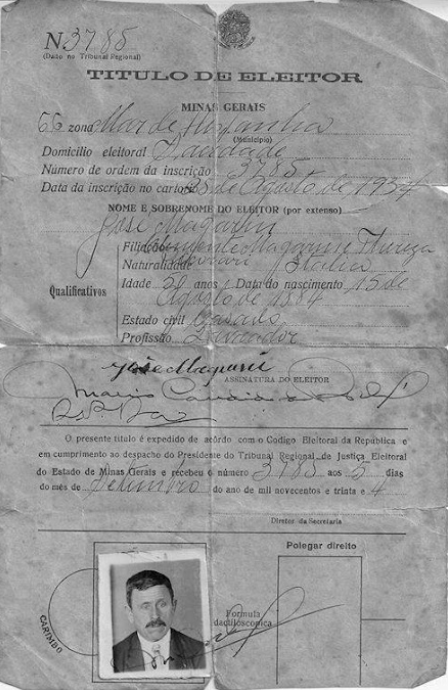 N 3785
(Dado no Tribunal Regional)
TITULO DE ELEITOR
MINAS GERAIS
66 zona Mar de Hespanha
(Municipio)
Domicilio eleitoral
Número de ordem da inscrição 3785
Data da inscrição no cartorio de Agosto de 1934
NOME E SOBRENOME DO ELEITOR (por extenso)
José Magarini
Filiação Magarini e Thereza
Naturalidade Italia
Qualificativos
Idade 50 anos Data do nascimento 15 de
Agosto de 1884
Estado civil Casado
Profissão Lavrador
José Magarini
ASSINATURA DO ELEITOR
O presente titulo é expedido de acôrdo com o Codigo Eleitoral da Republica e
em cumprimento ao despacho do Presidente do Tribunal Regional de Justiça Eleitoral
do Estado de Minas Gerais e recebeu o número 3785 aos 5 dias
do mês de Setembro do ano de mil novecentos e trinta e 4
Diretor da Secretaria
Polegar direito
CARIMBO
Formula
dactiloscopica